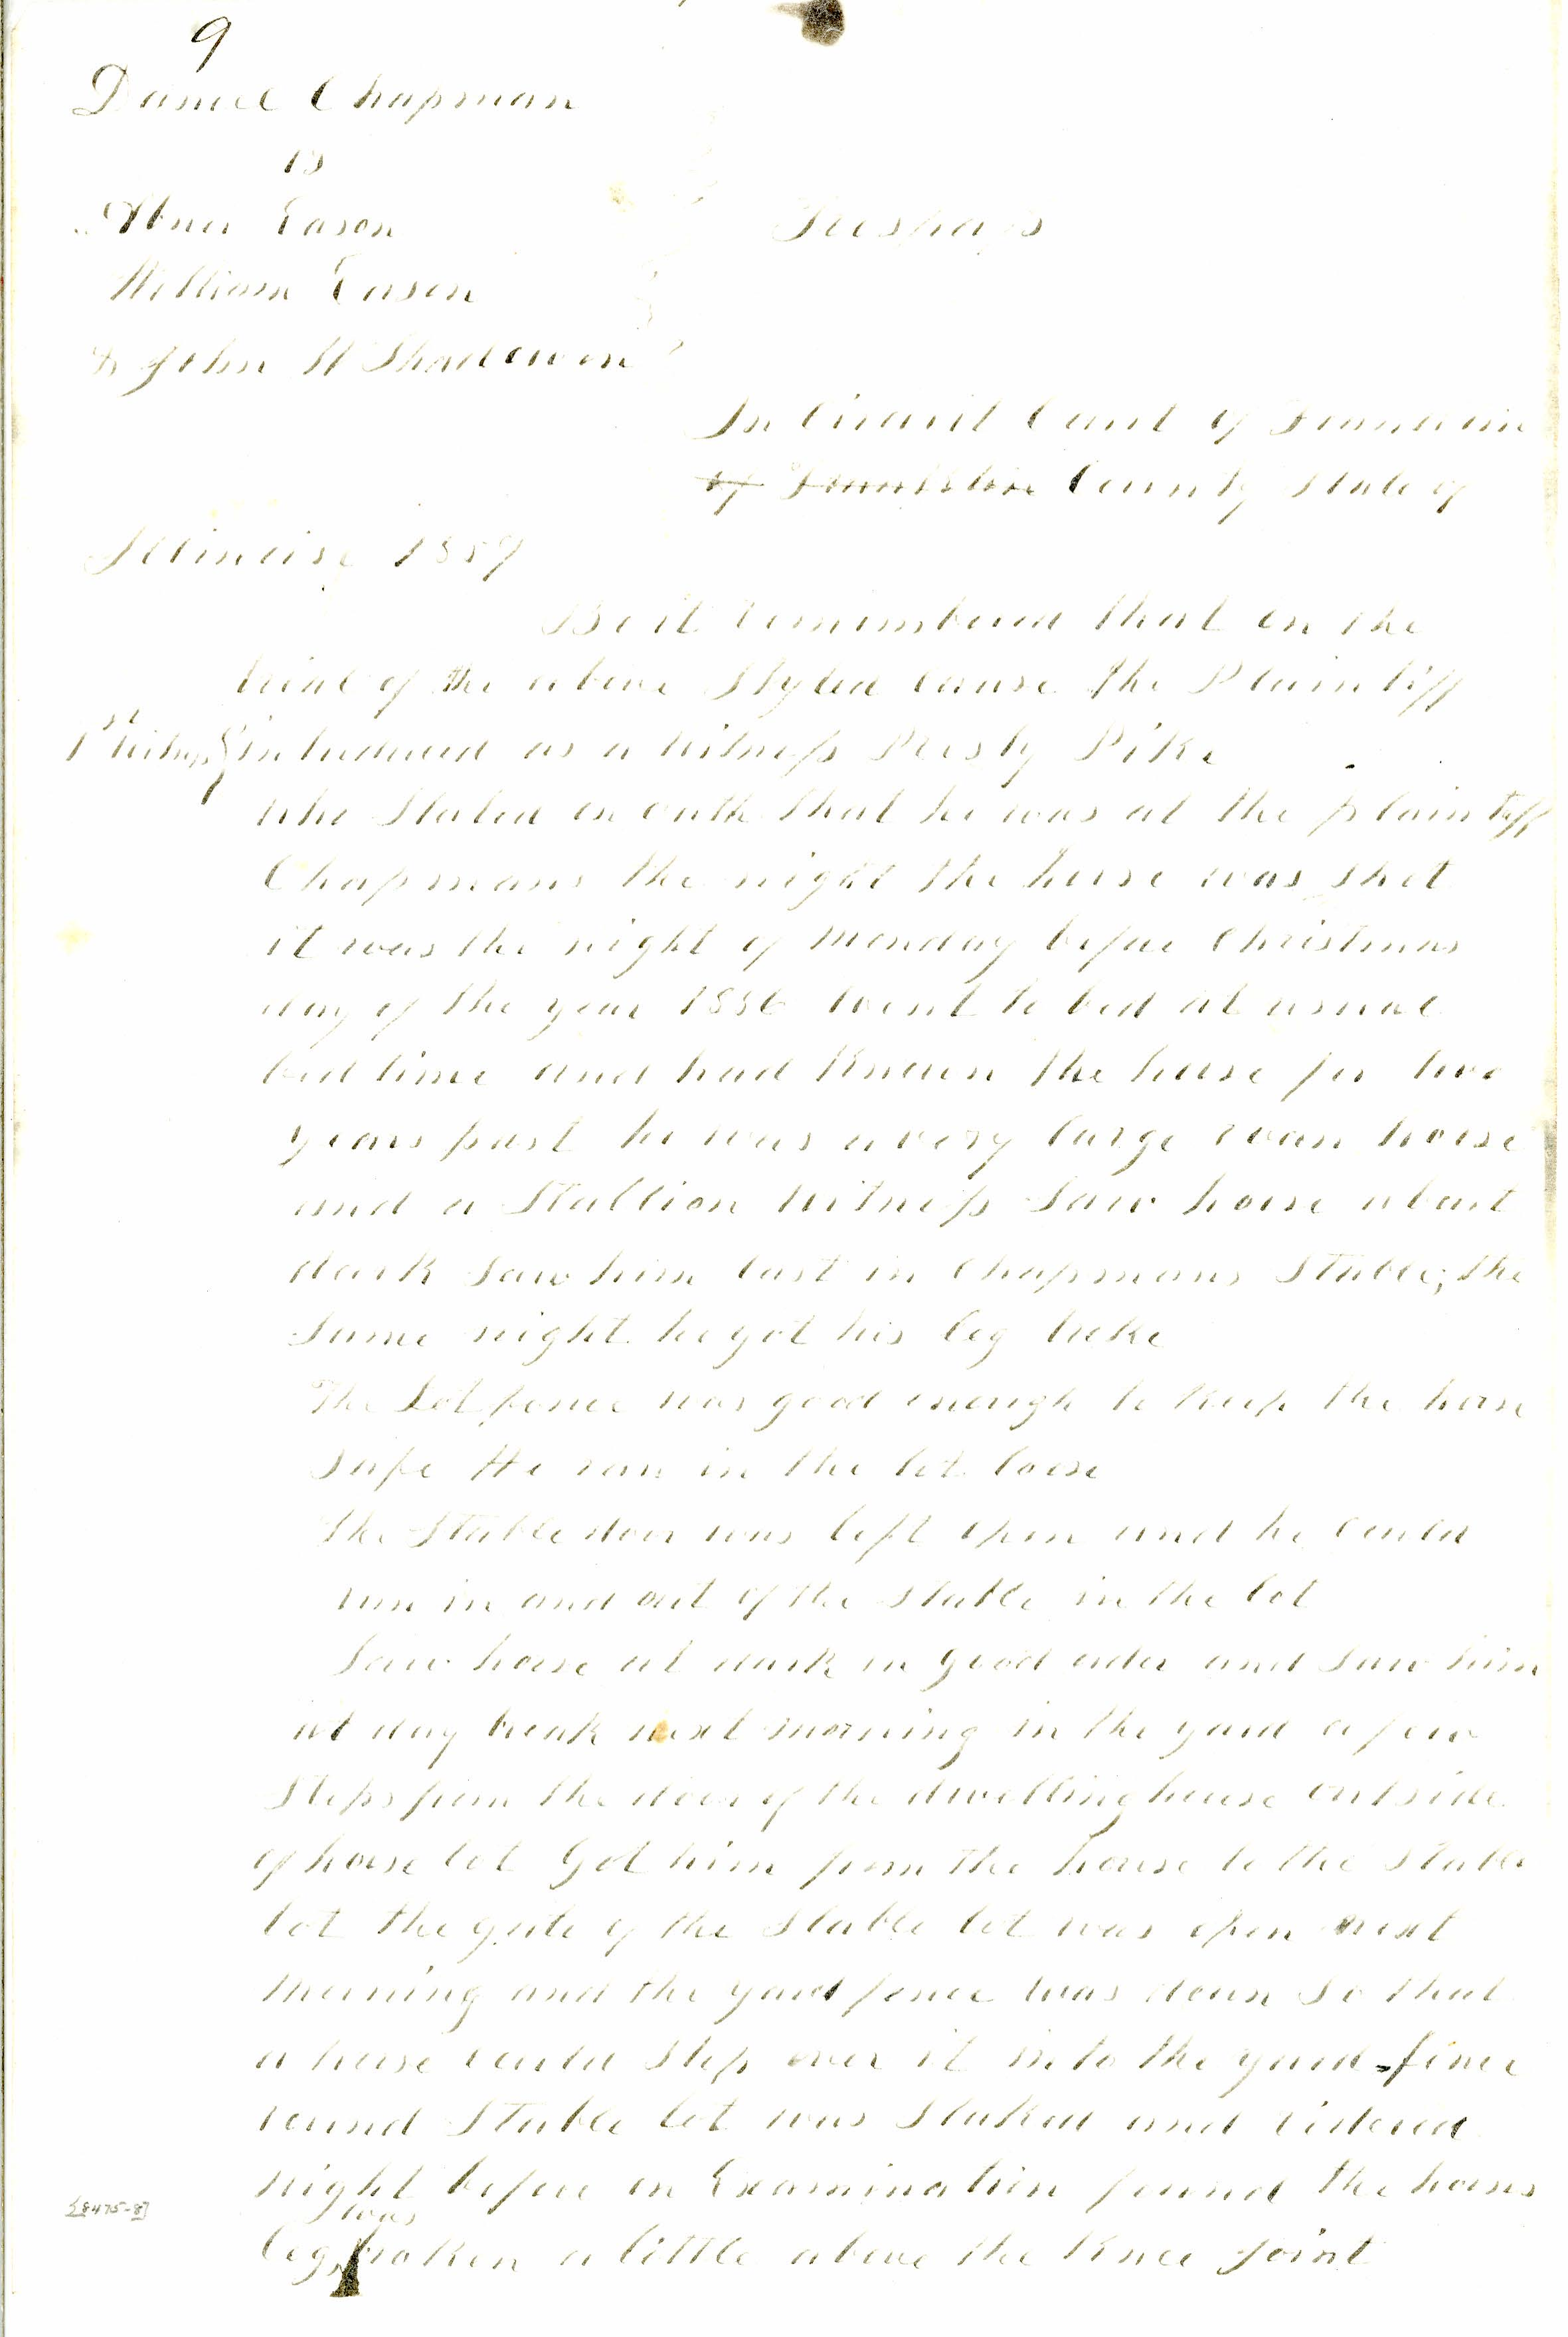 9
Daniel Chapman
vs
Abner Eason
William Eason
& John W Shadowen
Trespass
In Circuit Court of
County State of
Illinoise 1857
Be it remembered that on the
trial of the above Styled cause the Plaintiff
1st witness introduced as a witness Plesly Pike
who Stated on oath that he was at the plaintiff
Chapmans the night the horse was shot
it was the night of monday before Christmas
day of the year 1856 went to bed at usual
bed time and had known the horse for two
years past he was a very large roan horse
and a Stallion witness saw horse about
dark saw him last in Chapmans Stable; the
same night he got his leg broke
The Lot fence was good enough to keep the horse
safe He ran in the lot loose
The Stable door was left open and he could
run in and out of the stable in the lot
Saw horse at dark in good order and saw him
at day break next morning in the yard a few
Steps from the door of the dwelling house outside
of horse lot Got him from the house to the stable
lot the gate of the stable lot was open next
morning and the yard fence was down so that
a horse could step over it into the yard = fence
round Stable lot was staked and ridered
night before on Examination found the horses
leg was broken a little above the knee joint
[8475-8]